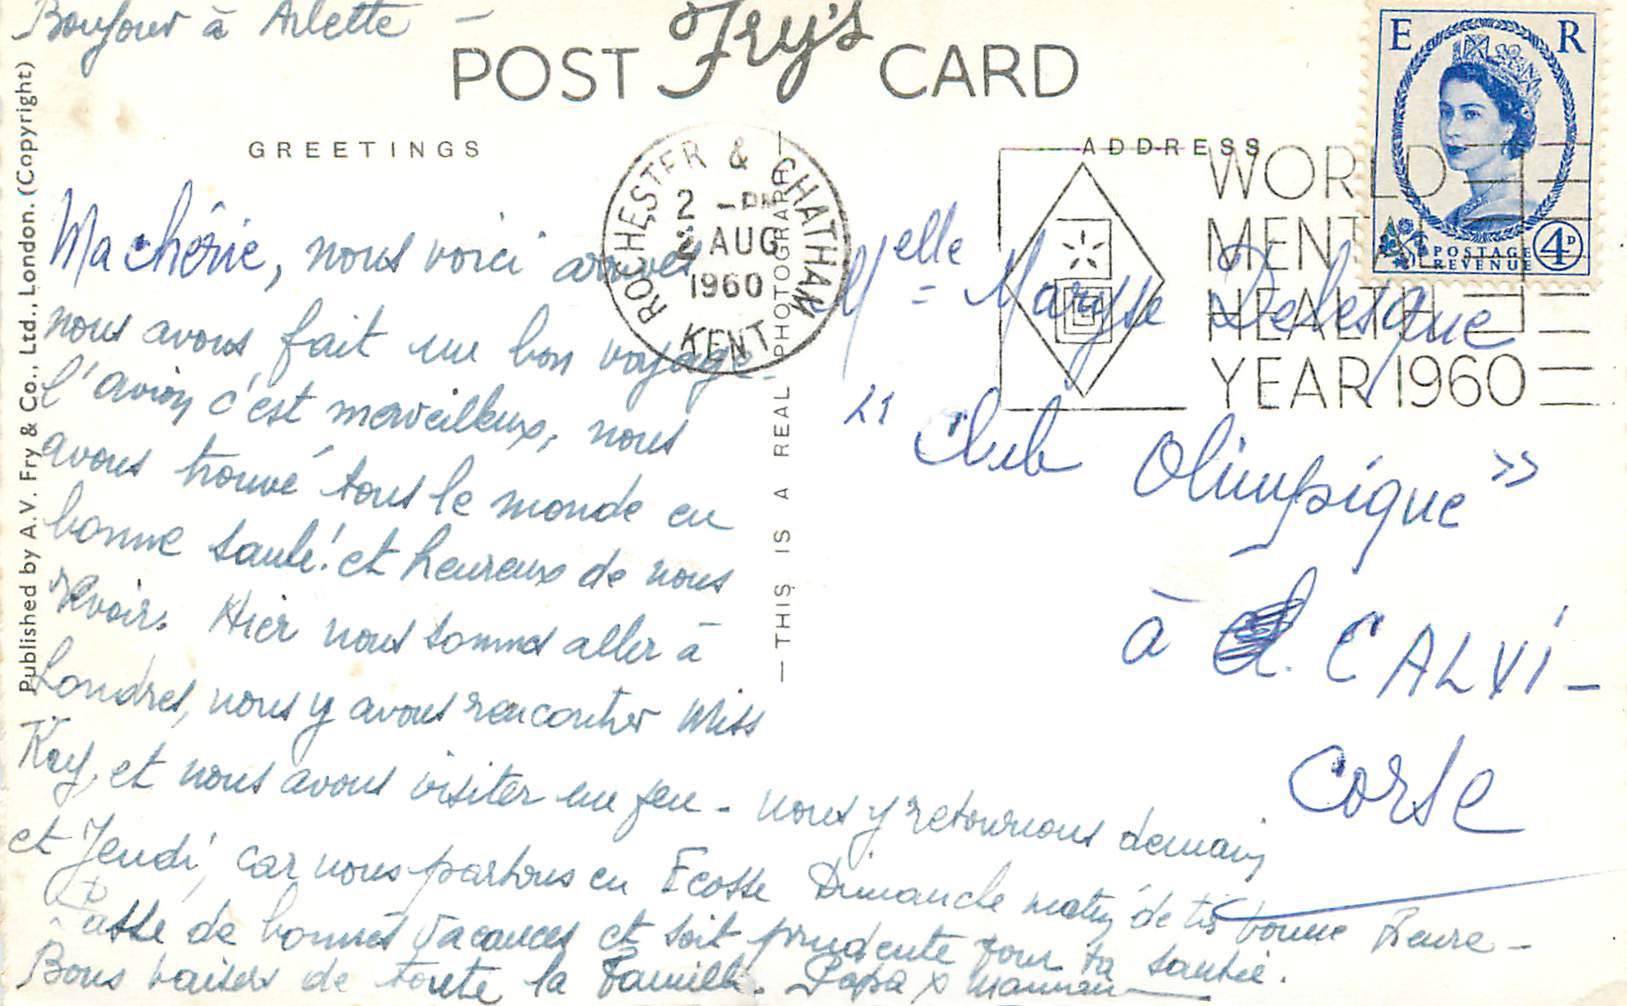 Bonjour à Arlette —
POST Fry's CARD
GREETINGS
ADDRESS
Published by A.V. Fry & Co., Ltd., London. (Copyright)
— THIS IS A REAL PHOTOGRAPH —
ROCHESTER & CHATHAM
2 - PM
2 AUG
1960
KENT
WORLD
MENTAL
HEALTH
YEAR 1960
E R
POSTAGE
REVENUE
4D
Ma chérie, nous voici arrivés
nous avons fait un bon voyage.
l'avion c'est merveilleux, nous
avons trouvé tous le monde en
bonne santé! et heureux de nous
revoir. Hier nous sommes aller à
Londres, nous y avons rencontrer Miss
Kay, et nous avons visiter un peu - nous y retournons demain
et Jeudi, car nous partons en Ecosse Dimanche matin de très bonne heure -
Passe de bonnes vacances et soit prudente pour ta santée.
Bons baisers de toute la famille. Papa x Maman
Melle = Maryse
"Club Olimpique"
à CALVI -
Corse